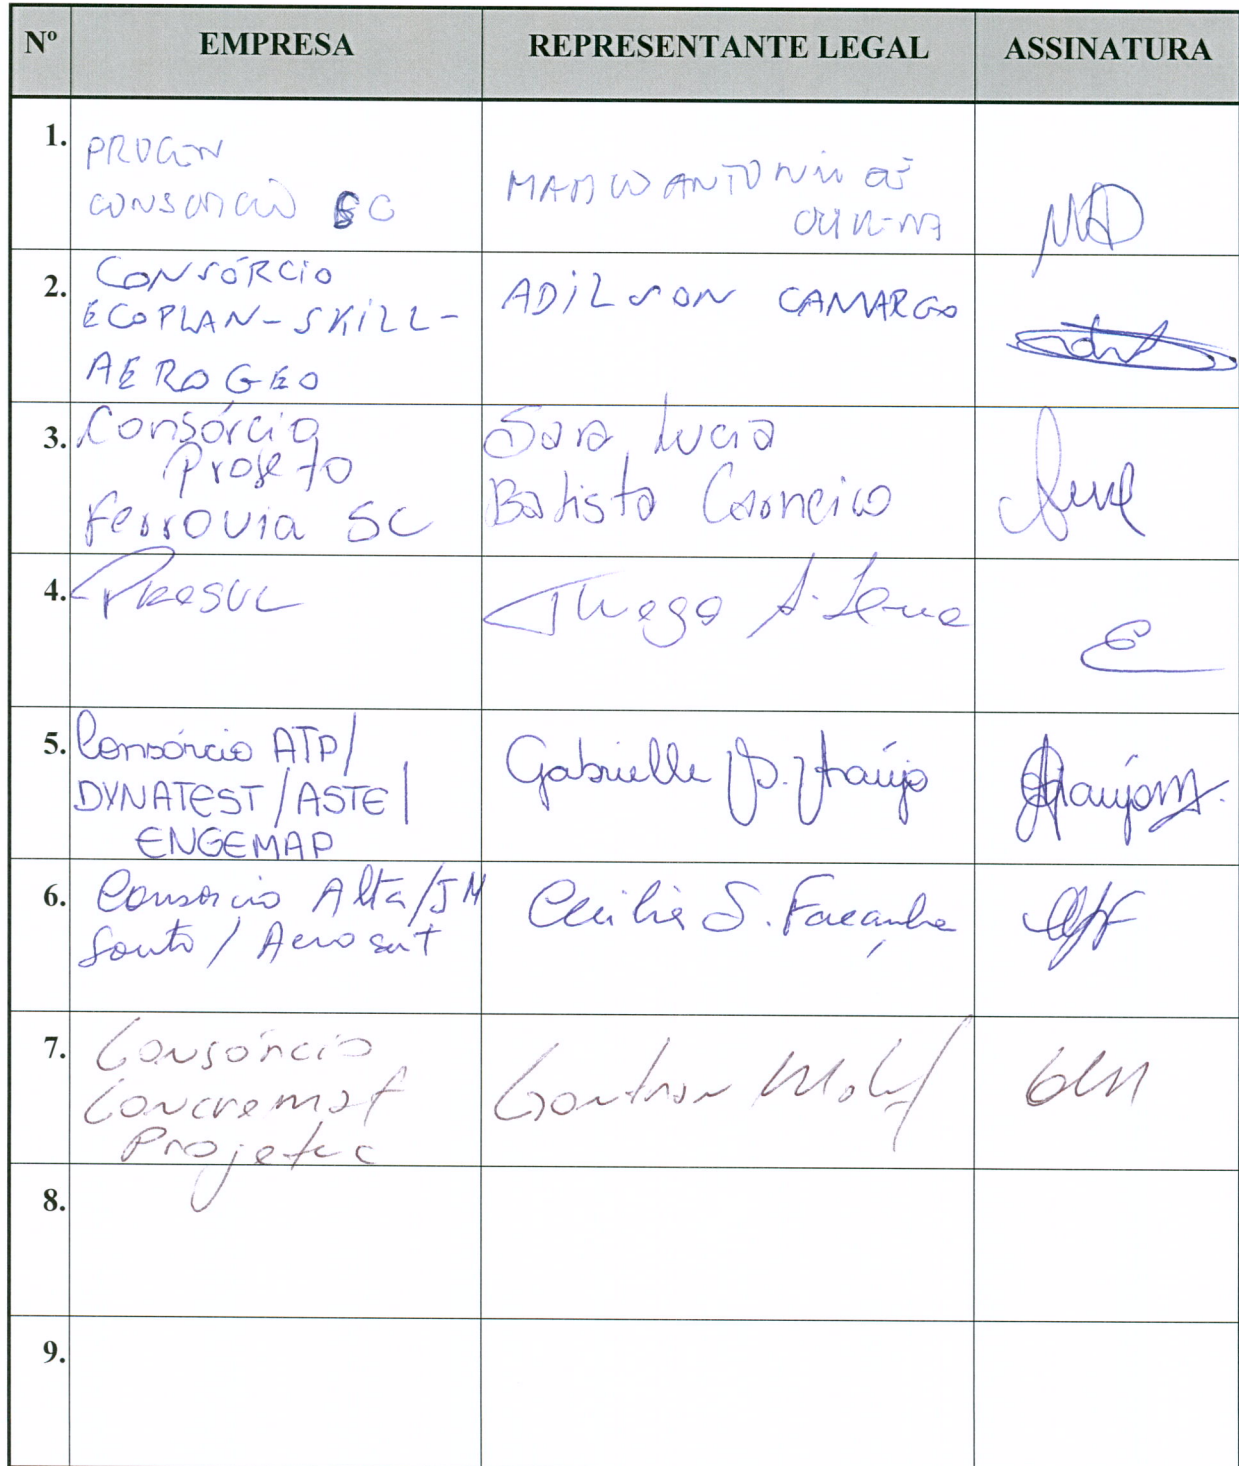 Nº EMPRESA REPRESENTANTE LEGAL ASSINATURA
1.
PROGEN
CONSORCIO SC
MARCO ANTONIO
2.
CONSÓRCIO
ECOPLAN-SKILL-
AEROGEO
ADILSON CAMARGO
3.
Consórcio
Projeto
Ferrovia SC
Sara Lucia
Batista Carneiro
4.
Thiago A.
5.
Consórcio ATP/
DYNATEST/ASTE/
ENGEMAP
Gabrielle D. Araújo
6.
Consorcio Alta/JM
Souto/Aerosat
Cecilia S. Façanha
7.
Consórcio
Concremat
Projetec
Gontran
8.
9.